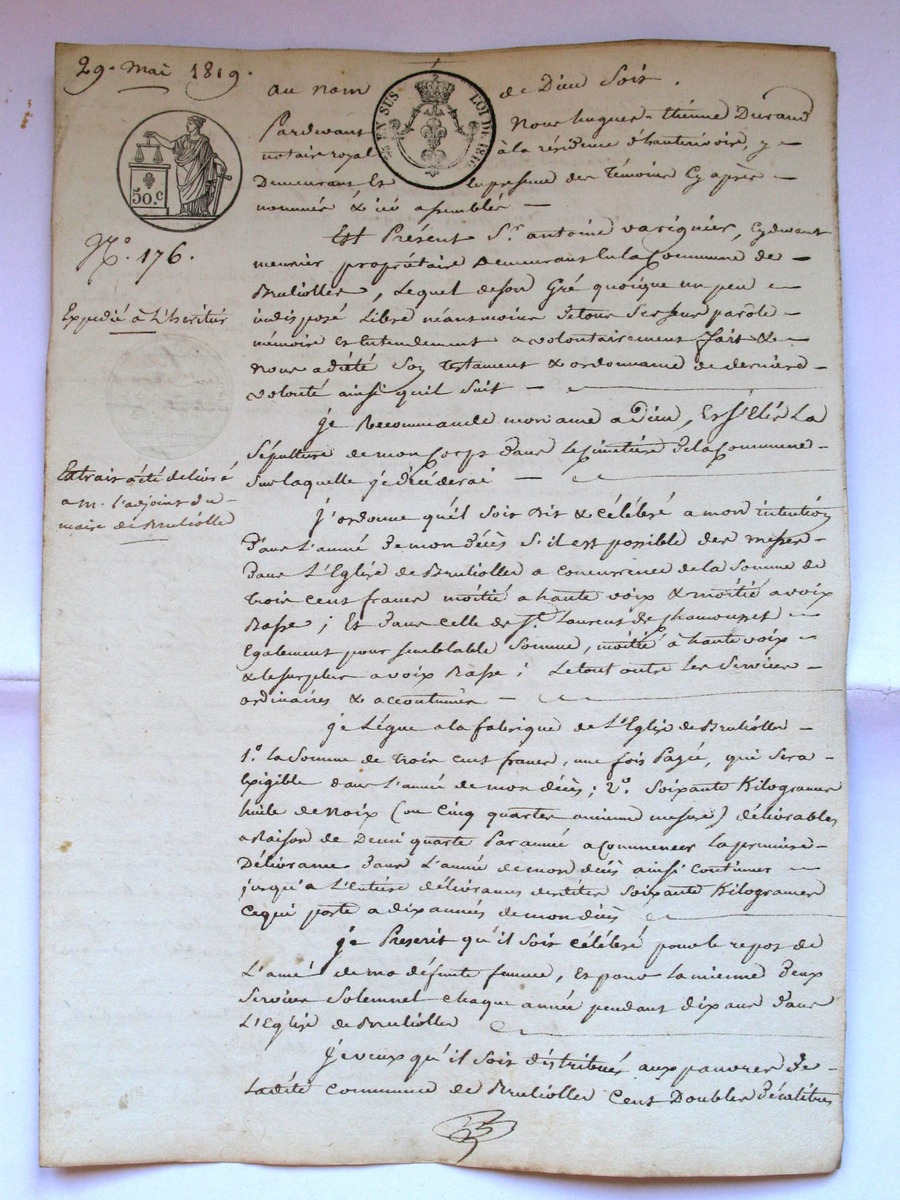 29. Mai 1819.
au nom de Dieu Soit.
Pardevant Nous hugues-Etienne Durand
notaire royal à la résidence d'hauterivoire, y
Demeurant Et en presence des Témoins Cy après
nommés & ici assemblés
Est Présent Sr. antoine variquier, Cydevant
meunier propriétaire Demeurant En la Commune de
Brulioller, Lequel de son Gré quoique un peu
indisposé Libre néantmoins de tous Ses sens parole
mémoire Et Entendement a volontairement fait &
nous a dicté Son Testament & ordonnance de derniere
volonté ainsi quil Suit
je Recommande mon ame a Dieu, Et j'Elis La
Sépulture de mon Corps dans Le Cimetiére de la Commune
Sur laquelle je décéderai
j'ordonne qu'il Soit Dit & Célébré a mon intention
dans L'année de mon décès S'il est possible des messes
dans L'Eglise de Brulioller a Concurrence de la Somme de
trois cent francs moitié a haute voix & moitié a voix
Basse; Et dans celle de St. Laurent de Chamousset
Egalement pour semblable Somme, moitié à haute voix
& le surplus a voix Basse; Le tout outre Les Services
ordinaires & accoutumés
je Légue a la fabrique de L'Eglise de Brulioller
1.° La Somme de trois cent francs, une fois Payée, qui Sera
Exigible dans L'année de mon décès; 2.° Soixante Kilogrames
huile de Noix (ou Cinq quartes ancienne mesure) délivrables
a Raison de Demi quarte Par année a commencer La premiere
Délivrance dans L'année de mon décès ainsi Continuer
jusqu'a L'Entiere délivrance desdites Soixante Kilogrames
Ce qui porte a dix années de mon décès
je Prescrit qu'il Soit Célébré pour le repos de
L'ame de ma défunte femme, Et pour La mienne deux
Services Solemnel Chaque année pendant dix ans dans
L'Eglise de Brulioller
je veux qu'il Soit distribués aux pauvres de
Ladite commune de Brulioller Cent Doubles décalitres
EN SUS
LOI DE 1816
50.c
N.° 176.
Expedié à L'heritier
Extrait a été délivré
a m. L'adjoint du
maire de Brulioller